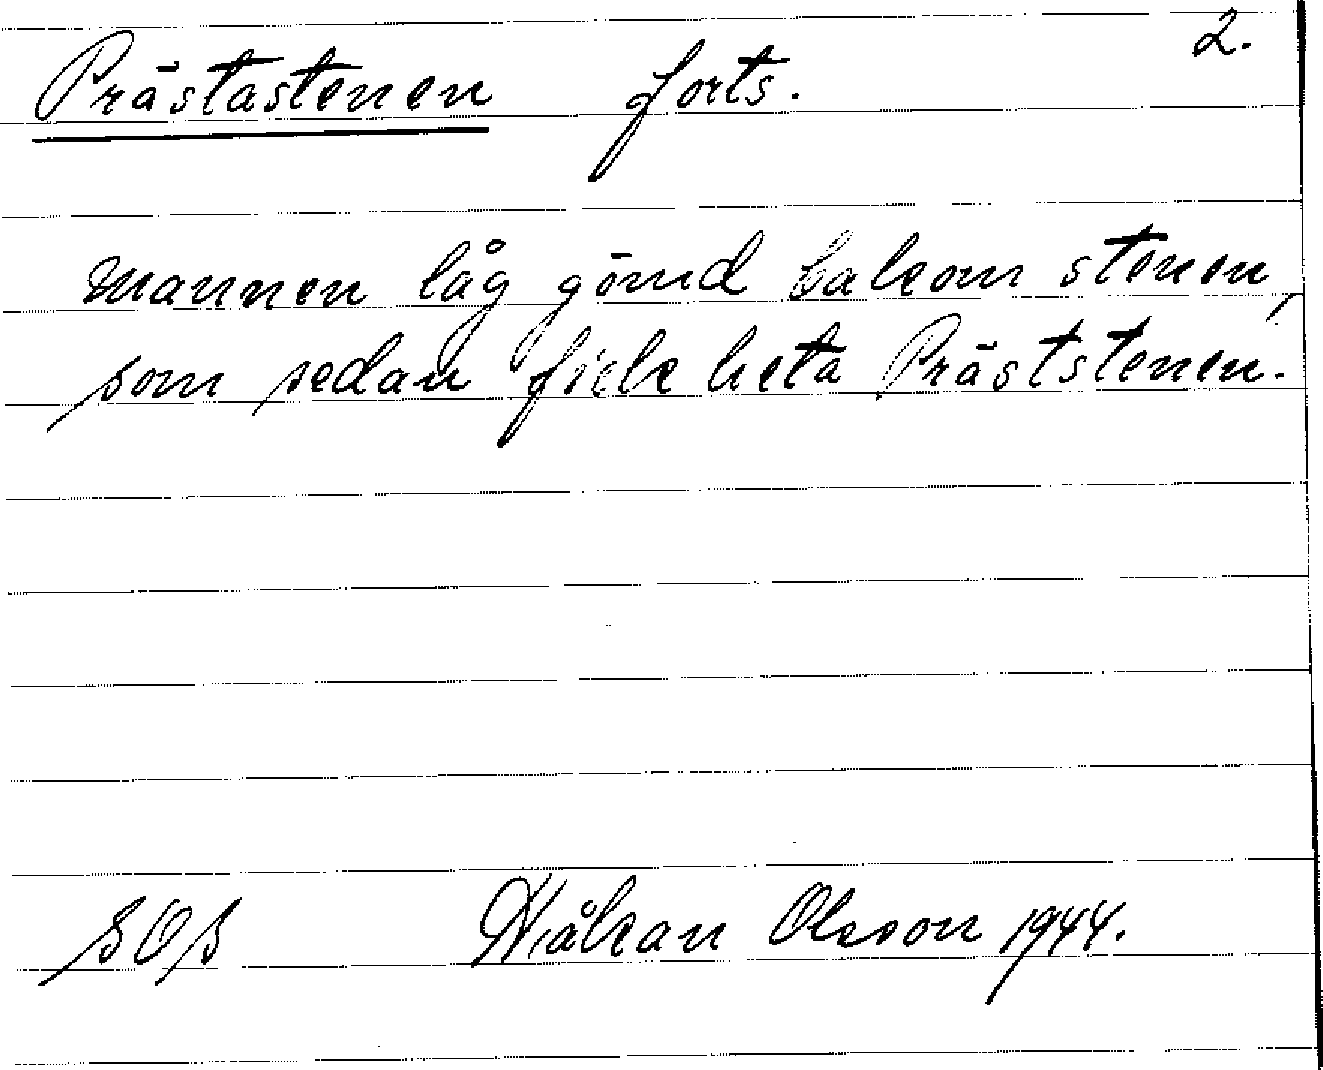 2.
Prästastenen forts.
mannen låg gömd bakom stenen,
som sedan fick heta Präststenen.
SOS Håkan Olsson 1944.